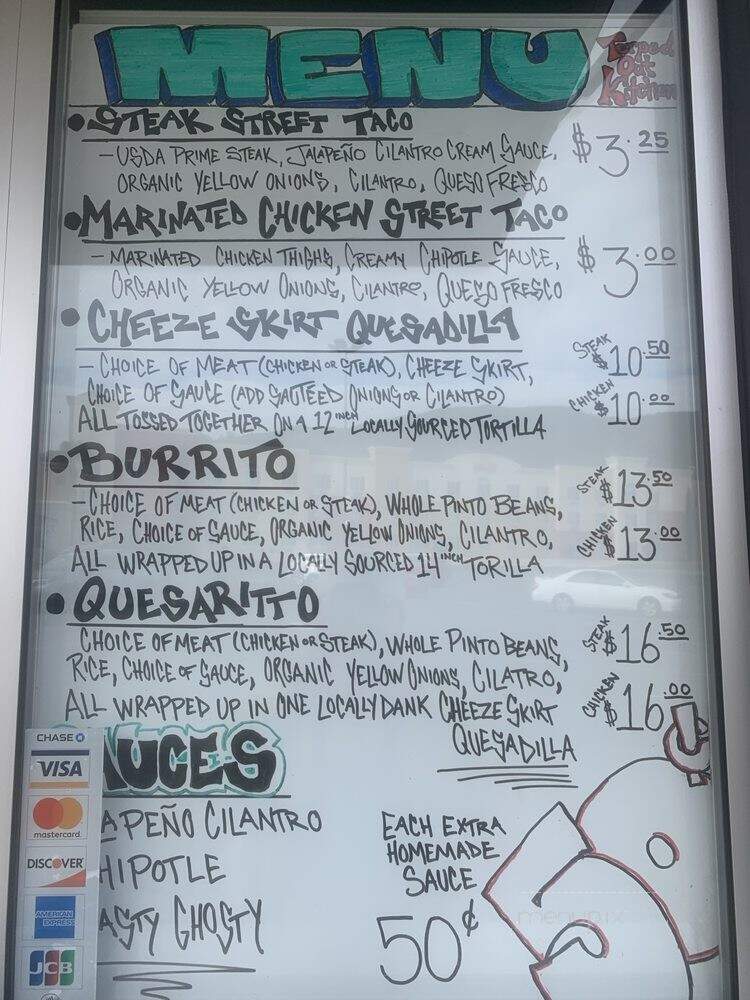 MENU
Torped Out Kitchen
• STEAK STREET TACO
- USDA PRIME STEAK, JALAPEÑO CILANTRO CREAM SAUCE, $3.25
ORGANIC YELLOW ONIONS, CILANTRO, QUESO FRESCO
• MARINATED CHICKEN STREET TACO
- MARINATED CHICKEN THIGHS, CREAMY CHIPOTLE SAUCE, $3.00
ORGANIC YELLOW ONIONS, CILANTRO, QUESO FRESCO
• CHEEZE SKIRT QUESADILLA
- CHOICE OF MEAT (CHICKEN OR STEAK), CHEEZE SKIRT, STEAK $10.50
CHOICE OF SAUCE (ADD SAUTEED ONIONS OR CILANTRO) CHICKEN $10.00
ALL TOSSED TOGETHER ON A 12 INCH LOCALLY SOURCED TORTILLA
• BURRITO
- CHOICE OF MEAT (CHICKEN OR STEAK), WHOLE PINTO BEANS, STEAK $13.50
RICE, CHOICE OF SAUCE, ORGANIC YELLOW ONIONS, CILANTRO, CHICKEN $13.00
ALL WRAPPED UP IN A LOCALLY SOURCED 14 INCH TORILLA
• QUESARITTO
CHOICE OF MEAT (CHICKEN OR STEAK), WHOLE PINTO BEANS, STEAK $16.50
RICE, CHOICE OF SAUCE, ORGANIC YELLOW ONIONS, CILATRO, CHICKEN $16.00
ALL WRAPPED UP IN ONE LOCALLY DANK CHEEZE SKIRT
QUESADILLA
AUCES
APEÑO CILANTRO
HIPOTLE
ASTY GHOSTY
EACH EXTRA
HOMEMADE
SAUCE
50¢
CHASE
VISA
mastercard
DISCOVER
AMERICAN EXPRESS
JCB